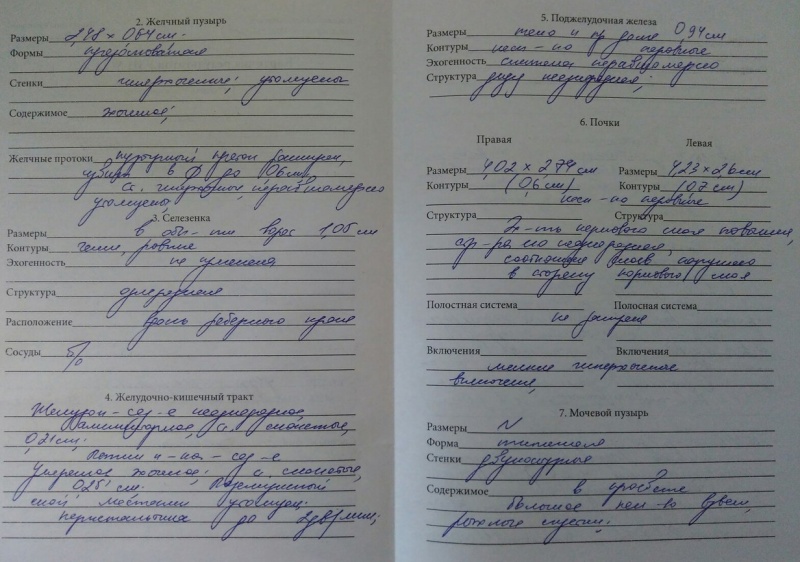 2. Желчный пузырь
Размеры 2,48 × 0,64 см.
Формы
Стенки гиперэхогенные, утолщены
Содержимое эхогенное,
Желчные протоки пузырный проток расширен,
в Ф до 0,6 см
ст. гиперэхогенная, неравномерно
утолщены
3. Селезенка
Размеры в обл-ти ворот 1,05 см
Контуры четкие, ровные
Эхогенность не изменена
Структура однородная
Расположение вдоль реберного края
Сосуды б/о
4. Желудочно-кишечный тракт
Желудок - сод-е неоднородное,
ст. слоистые,
0,21 см.
Петли к-ка - сод-е
умеренно эхогенное, ст. слоистые,
0,25 см.
слой местами утолщен.
перистальтика до 2 дв/мин,
5. Поджелудочная железа
Размеры тело и пр. доля 0,94 см
Контуры неровные
Эхогенность снижена неравномерно
Структура диф. неоднородная,
6. Почки
Правая
Левая
Размеры 4,02 × 2,74 см Размеры 4,23 × 2,6 см
Контуры (0,6 см) Контуры (0,7 см)
неровные
Структура Структура
Эх-ть коркового слоя повышен,
стр-ра его неоднородная,
соотношение слоев нарушено
в сторону коркового слоя
Полостная система Полосная система
не расширена
Включения Включения
мелкие гиперэхогенные
включения,
7. Мочевой пузырь
Размеры N
Форма типичная
Стенки двухконтурная
Содержимое в просвете
большое кол-во взвеси,
рыхлые сгустки.